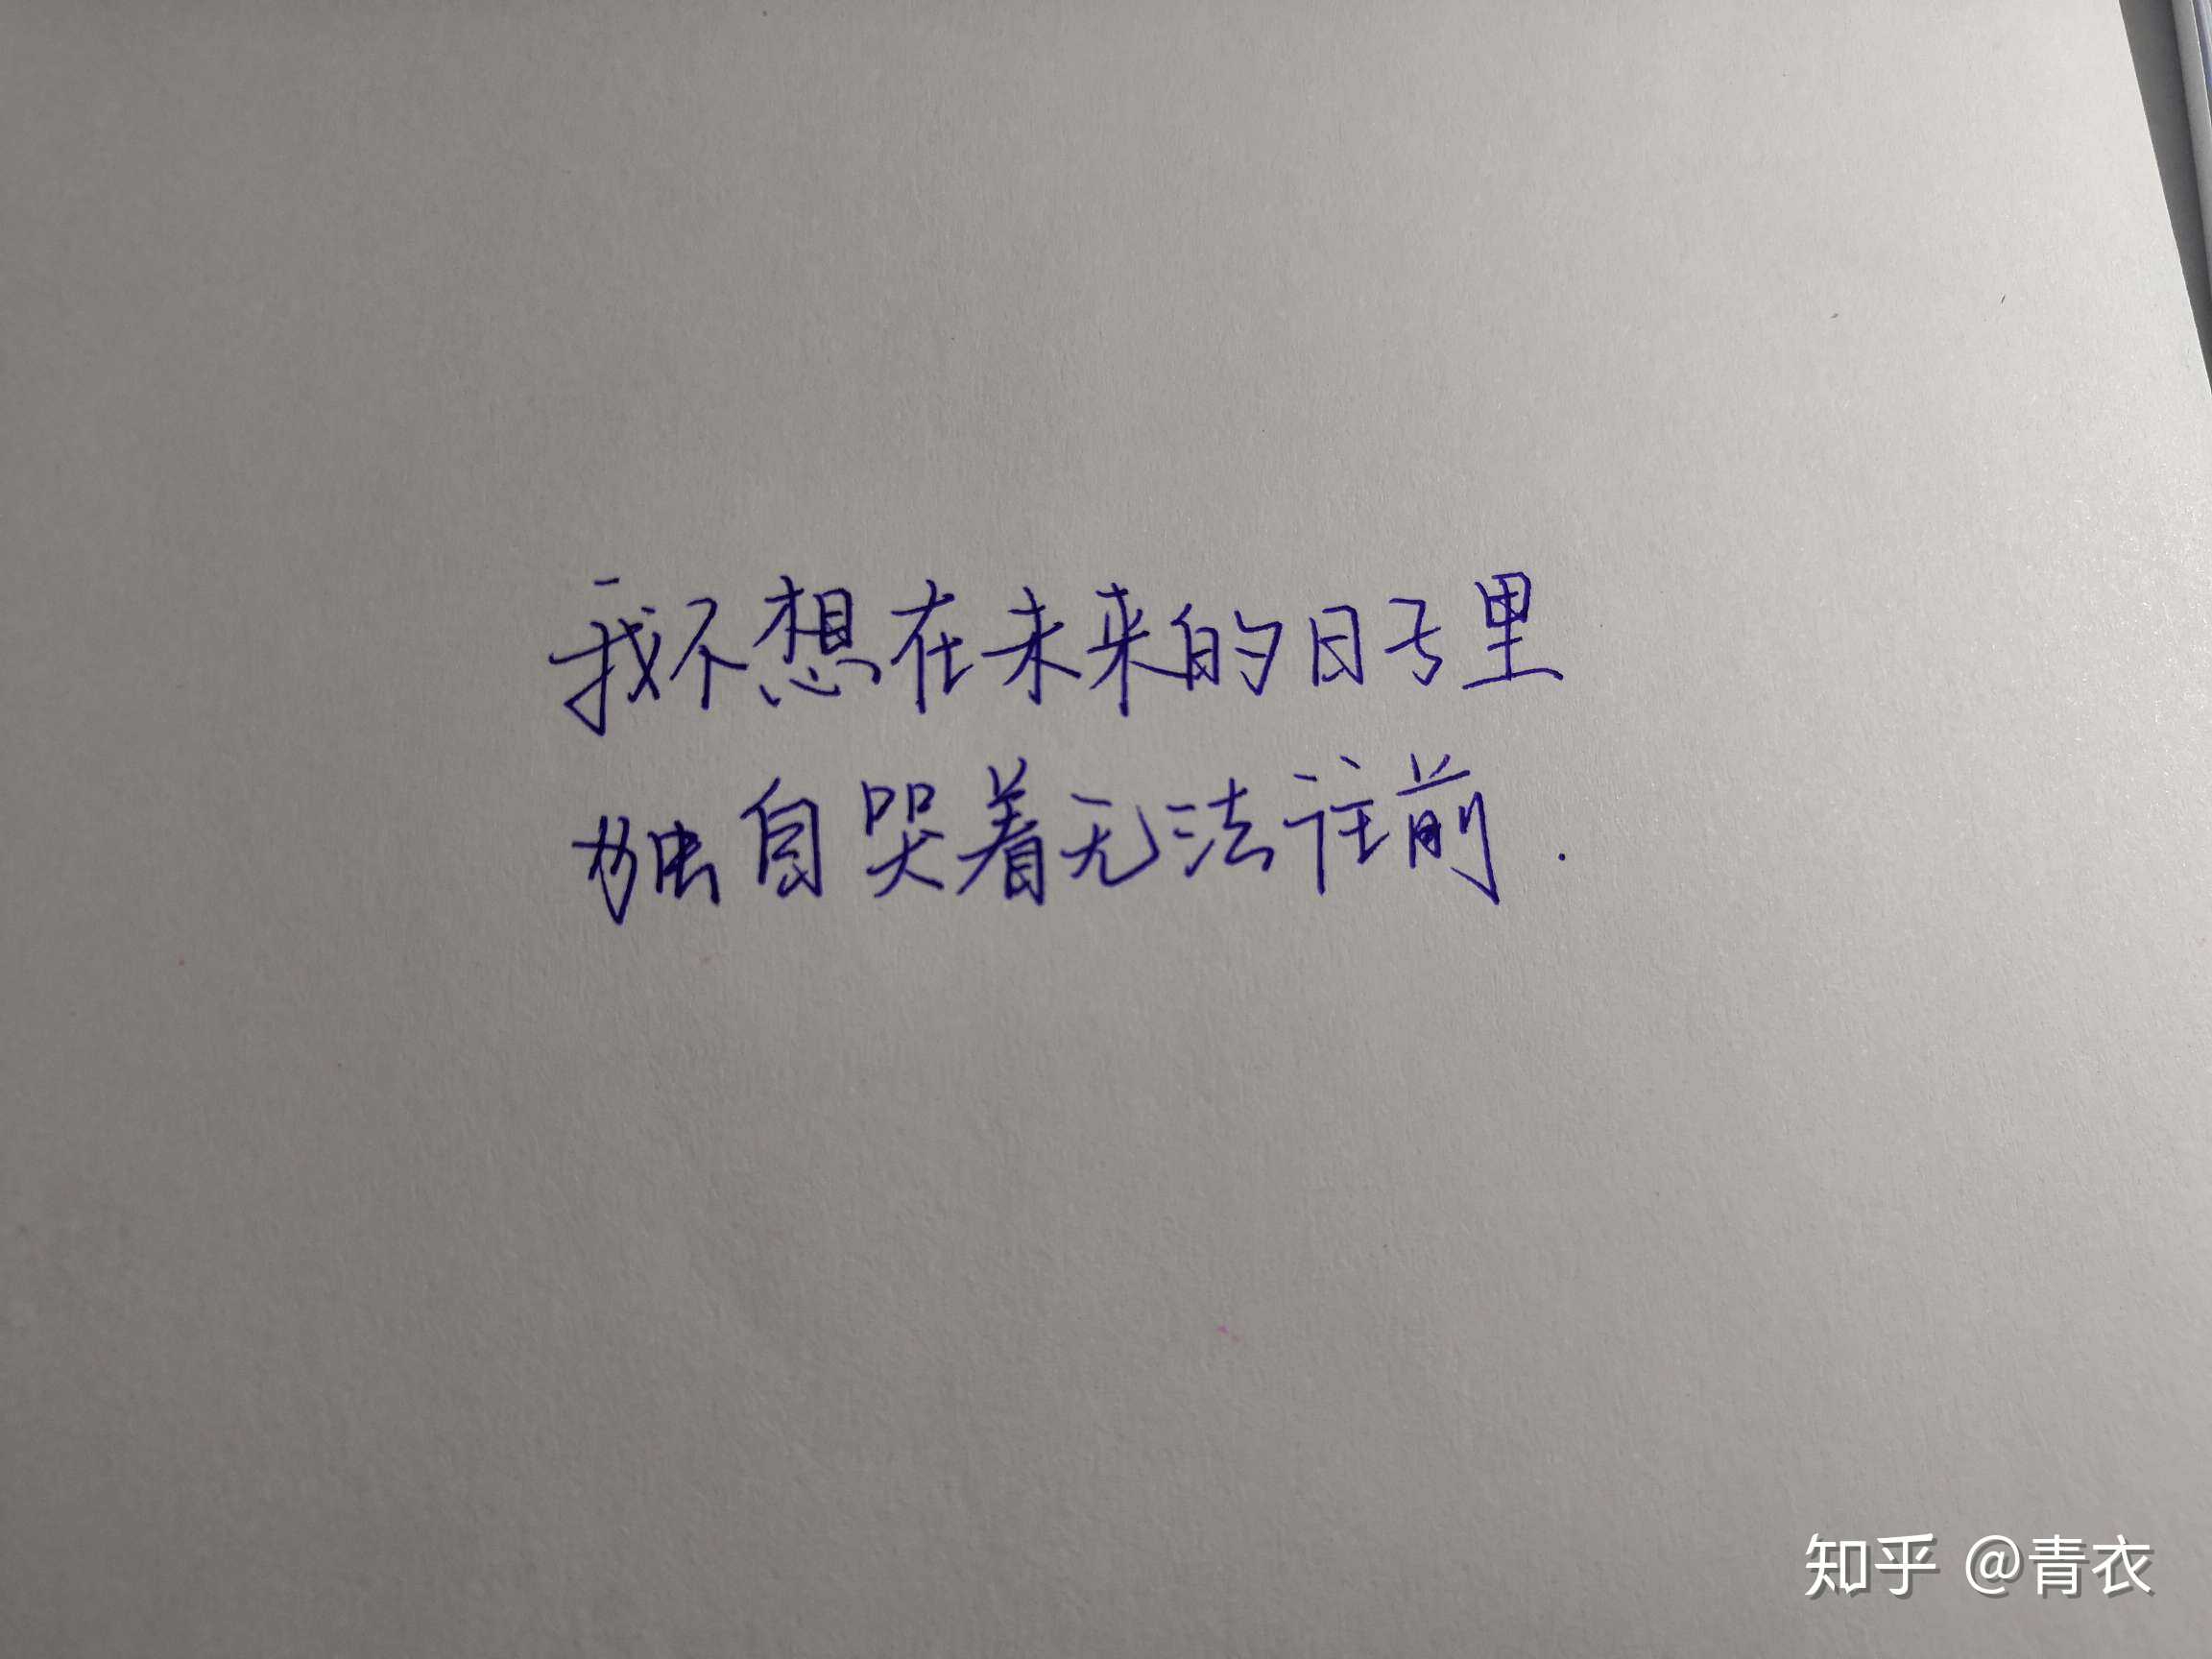 我不想在未来的日子里
独自哭着无法往前.
知乎 @青衣